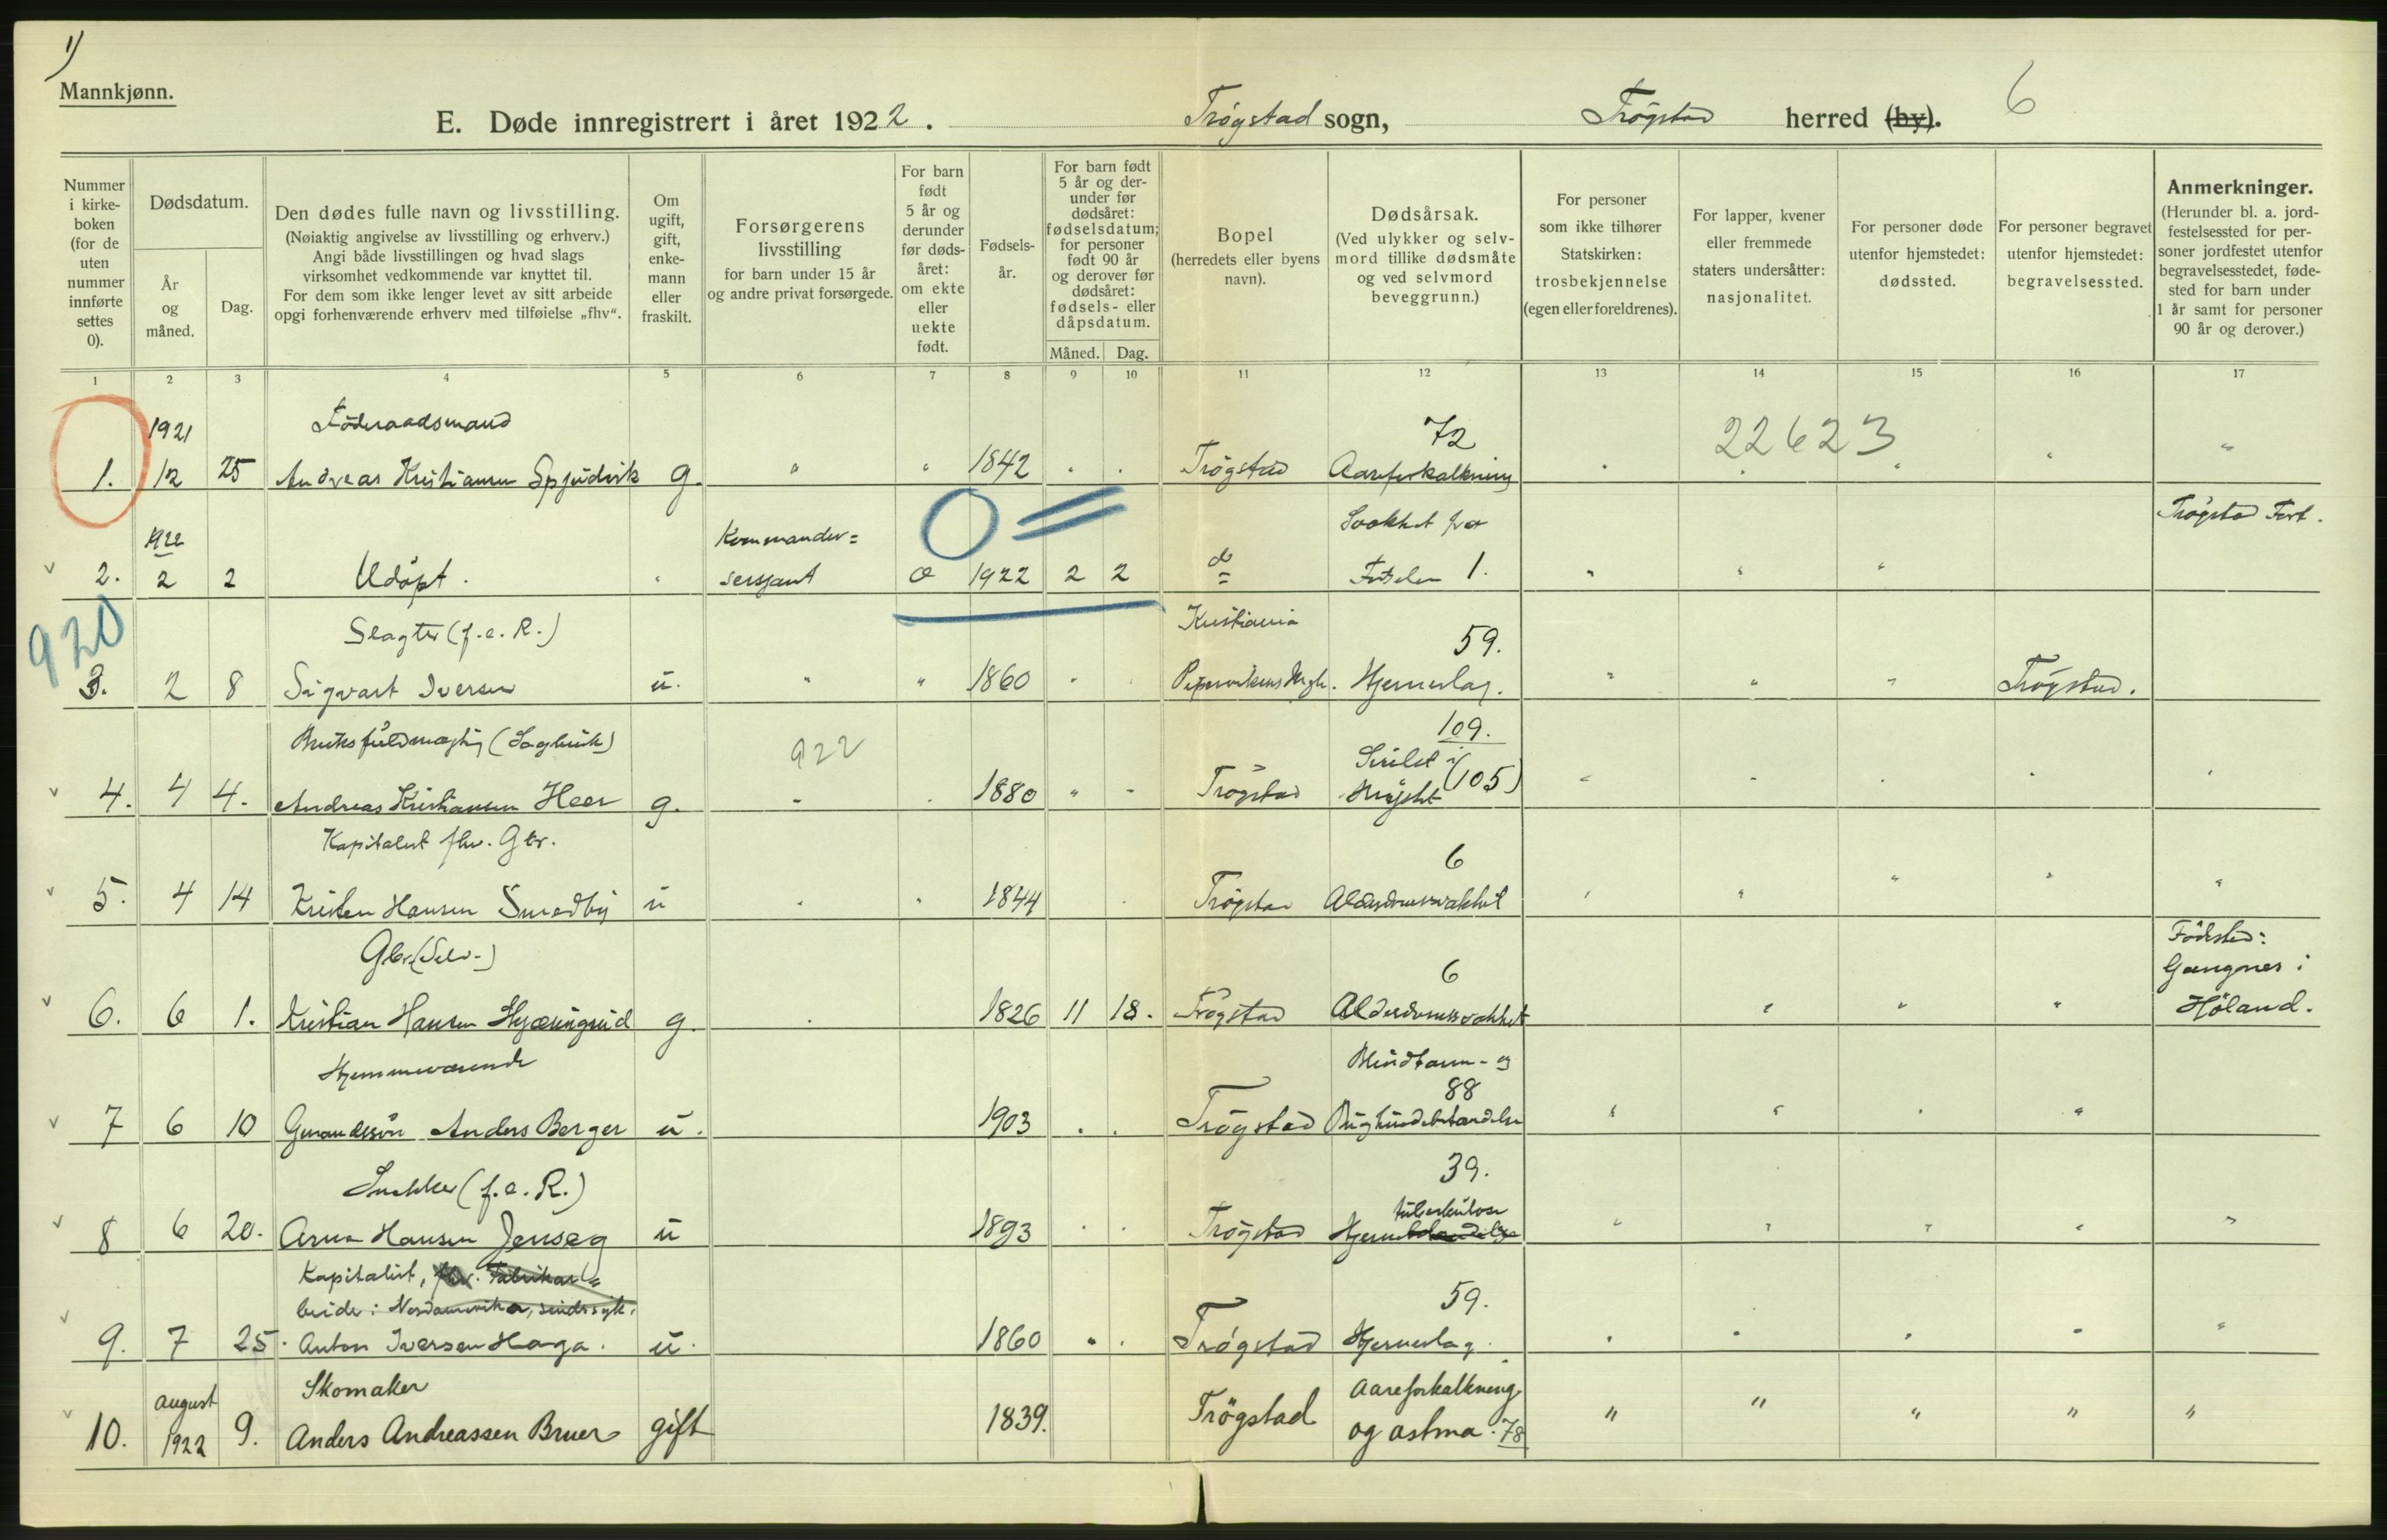 1)
Mannkjønn.
E. Døde innregistrert i året 1922. Trøgstad sogn, Trøgstad herred (by). 6
Nummer i kirke- boken (for de uten nummer innførte settes 0).
Dødsdatum.
År og måned.
Dag.
Den dødes fulle navn og livsstilling.
(Nøiaktig angivelse av livsstilling og erhverv.)
Angi både livsstillingen og hvad slags
virksomhet vedkommende var knyttet til.
For dem som ikke lenger levet av sitt arbeide
opgi forhenværende erhverv med tilføielse „fhv“.
Om ugift, gift, enke- mann eller fraskilt.
Forsørgerens
livsstilling
for barn under 15 år
og andre privat forsørgede.
For barn født 5 år og derunder før døds- året: om ekte eller uekte født.
Fødsels- år.
For barn født 5 år og der- under før dødsåret: fødselsdatum; for personer født 90 år og derover før dødsåret: fødsels- eller dåpsdatum.
Måned. Dag.
Bopel
(herredets eller byens
navn).
Dødsårsak.
(Ved ulykker og selv-
mord tillike dødsmåte
og ved selvmord
beveggrunn.)
For personer
som ikke tilhører
Statskirken:
trosbekjennelse
(egen eller foreldrenes).
For lapper, kvener
eller fremmede
staters undersåtter:
nasjonalitet.
For personer døde
utenfor hjemstedet:
dødssted.
For personer begravet
utenfor hjemstedet:
begravelsessted.
Anmerkninger.
(Herunder bl. a. jord-
festelsessted for per-
soner jordfestet utenfor
begravelsesstedet, føde-
sted for barn under
1 år samt for personer
90 år og derover.)
1 2 3 4 5 6 7 8 9 10 11 12 13 14 15 16 17
1921 Föderaadsmand 72 22623
1. 12 25 Andreas Kristiansen g. " " 1842 Trögstad Aareforkalkning
1922 Kommander= 0 = Svakhet fra Trögstad Fort.
2. 2 2 Udöpt. sersjant 1922 2 2 Födselen 1.
920 Slagter (f.e.R.) Kristiania 59.
3. 2 8 Sigvart Iversen u. " " 1860 Hjerneslag. Trögstad.
Bruksfuldmægtig (Sagbruk) 922 109.
4. 4 4. Andreas Kristiansen Heer g. 1880 Trögstad (105)
Kapitalist fhv. Gbr. 6
5. 4 14 Kristen Hansen Smedby u 1844 Trögstad Alderdomssvakhet
Gbr. (Selv-) 6 Födested:
Gangnes i
6. 6 1. Kristian Hansen g. 1826 11 18. Trögstad Alderdomssvakhet Höland.
Hjemmeværende Blindtarm- og
88
7 6 10 Gaardmandssön Anders Berger u. 1903 Trögstad Bughindebetændelse
Snekker (f.e.R.) 39.
tuberkulose
8 6 20. Arne Hansen u 1893 Trögstad Hjernebetændelse
Kapitalist, fhv. Fabrikar=
beider i Nordamerika, sindssyk. 59.
9. 7 25. Anton Iversen Haga. u. 1860 Trögstad Hjerneslag.
august Skomaker Aareforkalkning
10. 1922 9. Anders Andreassen Bruer gift 1839. Trögstad og astma. 78 " " " " "